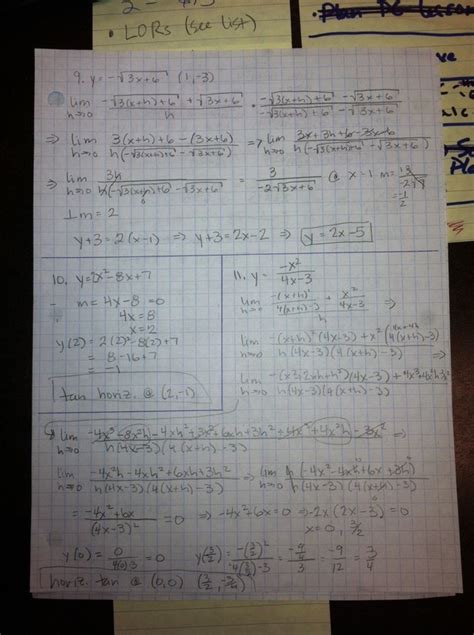 • LORs (see list)
9. y = -√3x+6 (1,-3)
lim h→0 -√3(x+h)+6 + √3x+6 / h • -√3(x+h)+6 - √3x+6 / -√3(x+h)+6 - √3x+6
⇒ lim h→0 3(x+h)+6-(3x+6) / h(-√3(x+h)+6 - √3x+6) ⇒ lim h→0 3x+3h+6-3x-6 / h(-√3(x+h)+6 - √3x+6)
⇒ lim h→0 3h / h(-√3(x+h)+6 - √3x+6) = 3 / -2√3x+6 @ x=1 m = 3 / -2√9
= -1/2
⊥m = 2
y+3 = 2(x-1) ⇒ y+3 = 2x-2 ⇒ y = 2x-5
10. y = 2x²-8x+7
m = 4x-8 = 0
4x = 8
x = 2
y(2) = 2(2)²-8(2)+7
= 8-16+7
= -1
tan horiz. @ (2,-1)
11. y = -x² / 4x-3
lim h→0 -(x+h)² / 4(x+h)-3 + x² / 4x-3 / h ⇒
-(x+h)²(4x-3)+x²(4(x+h)-3 / h(4x-3)(4(x+h)-3) ⇒
lim h→0 -(x²+2xh+h²)(4x-3)+4x³+4x²h-3x² / h(4x-3)(4(x+h)-3)
lim h→0 -4x³-8x²h-4xh²+3x²+6xh+3h²+4x³+4x²h-3x² / h(4x-3)(4(x+h)-3) ⇒
lim h→0 -4x²h-4xh²+6xh+3h² / h(4x-3)(4(x+h)-3) ⇒ lim h→0 h(-4x²-4xh+6x+3h) / h(4x-3)(4(x+h)-3)
= -4x²+6x / (4x-3)² = 0 ⇒ -4x²+6x = 0 ⇒ -2x(2x-3) = 0
x = 0, 3/2
y(0) = 0 / 4(0)-3 = 0 y(3/2) = -(3/2)² / 4(3/2)-3 = -9/4 / 3 = -9/12 = 3/4
horiz. tan @ (0,0) (3/2, -3/4)